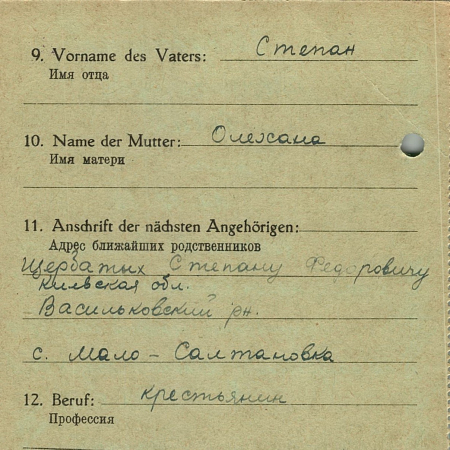 9. Vorname des Vaters: Степан
Имя отца
10. Name der Mutter: Олехана
Имя матери
11. Anschrift der nächsten Angehörigen:
Адрес ближайших родственников
Щербатых Степану Федоровичу
Киевская обл.
Васильковский рн.
с. Мало-Салтановка
12. Beruf: крестьянин
Профессия